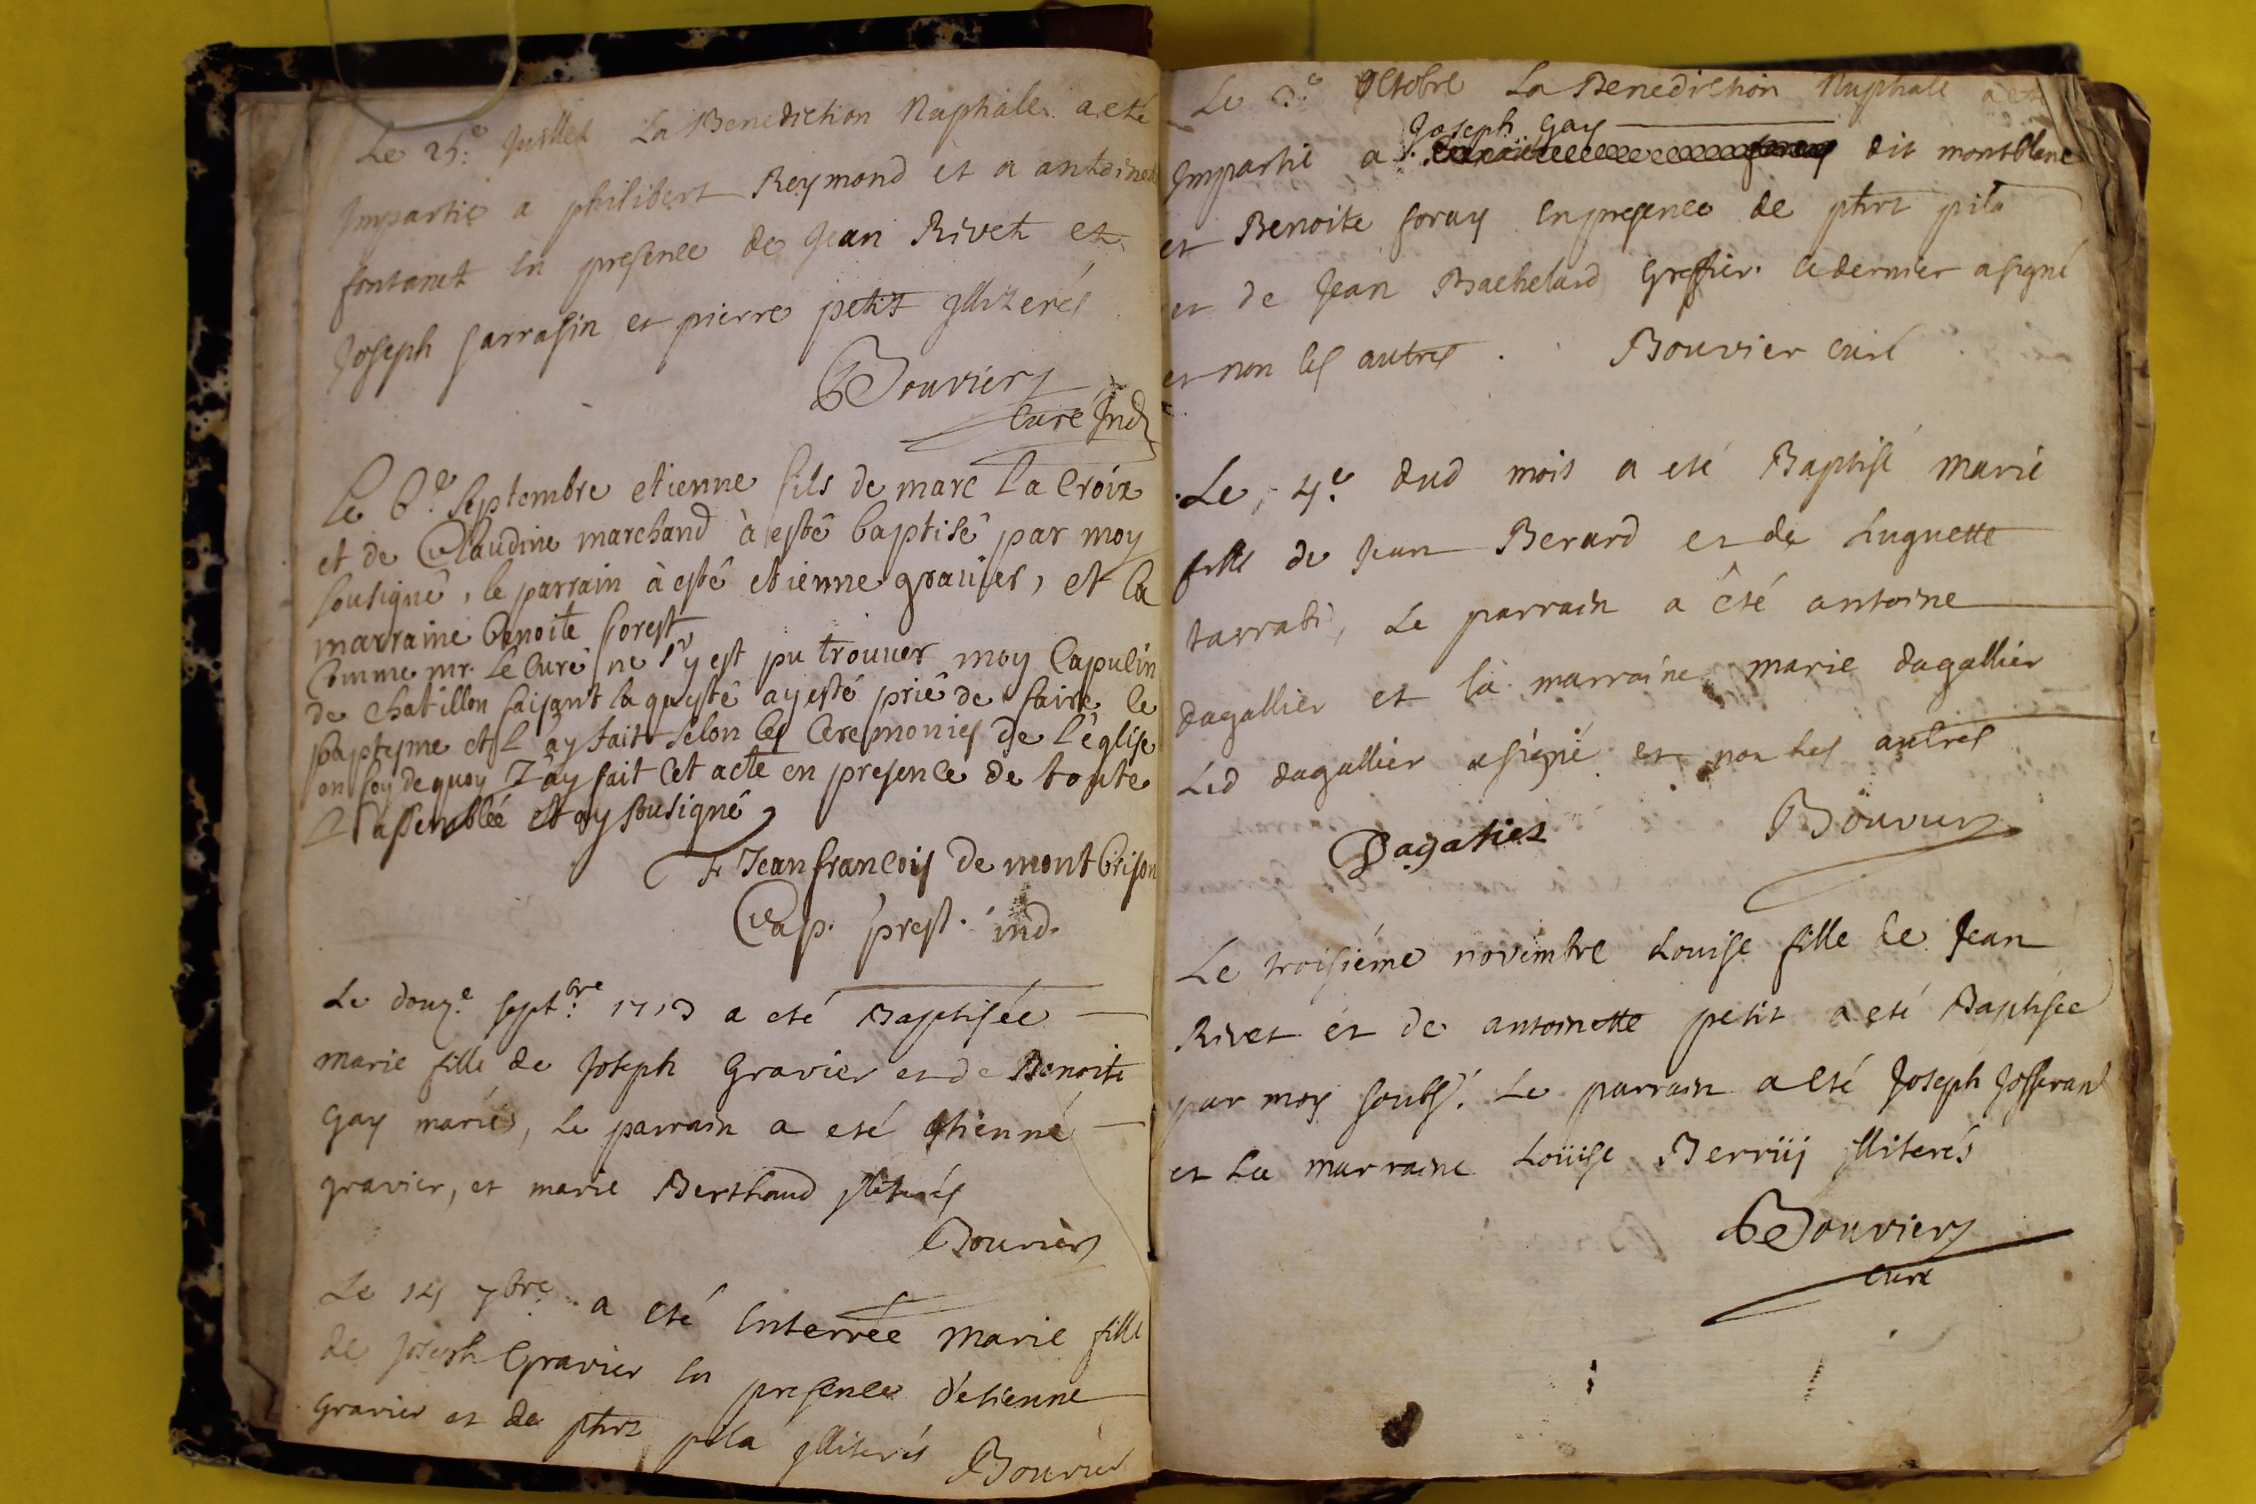 Le 25.e Juillet La Benediction Nuptiale a eté
Impartie a philibert Reymond et a antoinet
fontanet En presence de Jean Rivet et
Joseph sarrasin et pierre petit Illiterés
Bouvier
Curé Ind
Le 6.e Septembre etienne fils de marc la Croix
et de Claudine marchand à esté baptisé par moy
sousigné, le parrain à esté etienne gravier, et la
marraine benoite forest
Comme mr. Le Curé ne s'y est pu trouver moy Capucin
de chatillon faisant la questé ay esté prié de faire le
baptesme et l'ay fait selon les Ceremonies de l'église
en foy de quoy J'ay fait cet acte en presence de toute
L'assemblée et ay sousigné
F Jean francois de montbrison
Cap. prest. ind.
Le douz.e sept.bre 1713 a eté Baptisée
marie fille de Joseph Gravier et de Benoite
Gay mariés, Le parrain a eté Etienne
gravier, et marie Berthaud Illiterés
Bouvier
Le 14 7bre. a eté Enterrée marie fille
de Joseph Gravier En presence d'etienne
Gravier et de phrt pila Illiterés Bouvier
Le 3.e Octobre La Benediction Nuptiale a eté
Joseph Gay
Impartie a dit montblanc
et Benoite foray En presence de phrt pila
et de Jean Bachelard Greffier. Ce dernier a signé
et non les autres. Bouvier curé
Le 4.e dud mois a eté Baptisé marie
fille de Jean Berard et de huguette
tarrabi, Le parrain a êté antoine
dagallier et la marraine marie dagallier
Led dagallier a signé et non les autres
Dagalier Bouvier
Le troisiéme novembre Louise fille de Jean
Rivet et de antoinette petit a eté Baptisée
par moy soubs.é Le parrain a eté Joseph Josserand
et La marraine Loüise Berrüy Illiterés
Bouvier
curé